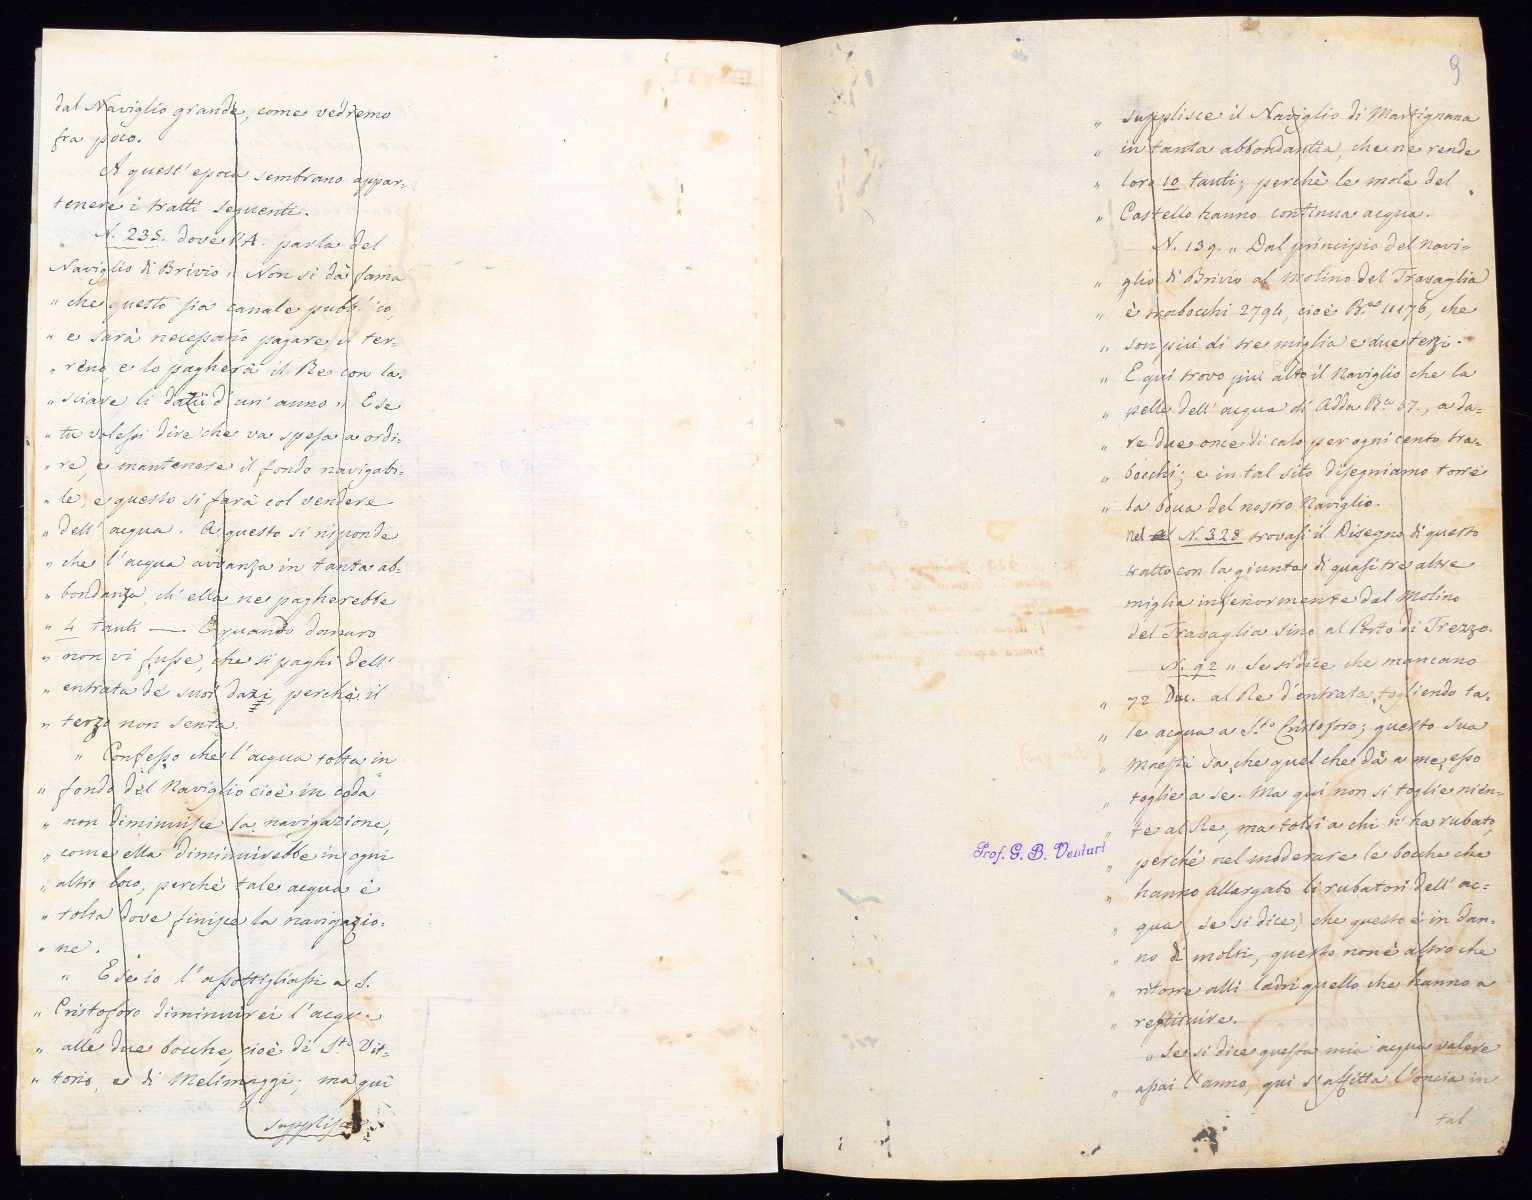 dal Naviglio grande, come vedremo
fra poco.
A quest' epoca sembrano appar=
tenere i tratti seguenti.
N. 235. dove l'A. parla del
Naviglio di Brivio „ Non si dà fama
„ che questo sia canale pubblico,
„ e sarà necessario pagare il ter=
„ reno, e lo pagherà il Re con la=
„ sciare li dazii d'un' anno „ E se
„ tu volessi dire che va spesa a ordi=
„ re, e mantenere il fondo navigabi=
„ le, e questo si farà col vendere
„ dell' acqua. A questo si risponde
„ che l'acqua avvanza in tanta ab=
„ bondanza, ch' ella ne pagherebbe
„ 4 tanti — E quando danaro
„ non vi fusse, che si paghi dell'
„ entrata de' suoi dazi, perchè il
„ terzo non senta.
„ Confesso che l'acqua tolta in
„ fondo del Naviglio cioè in coda
„ non diminuisce la navigazione,
„ come ella diminuirebbe in ogni
„ altro loco, perchè tale acqua è
„ tolta dove finisce la navigazio=
„ ne.
„ E se io l'assottigliassi a S.
„ Cristoforo diminuirei l'acqua
„ alle due bocche, cioè di S.to Vit=
„ torio, e di Melimaggi; ma quì
supplisce
9
„ supplisce il Naviglio di Martignana
„ in tanta abbondantia, che ne rende
„ loro 10 tanti; perchè le mole del
„ Castello hanno continua acqua.
N. 139. „ Dal principio del navi=
„ glio di Brivio al Molino del Travaglia
„ è trabocchi 2794, cioè B.cia 11176, che
„ son più di tre miglia e due terzi.
„ E qui trovo più alto il Naviglio che la
„ pelle dell' acqua di Adda B.a 57., a da=
„ re due once di calo per ogni cento tra=
„ bocchi; e in tal sito disegniamo torre
„ la bocca del nostro Naviglio.
Nel N. 328 trovasi il Disegno di questo
tratto con la giunta di quasi tre altre
miglia inferiormente dal Molino
del Travaglia sino al Porto di Trezzo.
N. 92 „ Se si dice che mancano
„ 72 Duc. al Re d'entrata, togliendo ta=
„ le acqua a S.to Cristoforo; questo sua
„ Maestà sa, che quel che dà a me, esso
„ toglie a se. Ma qui non si toglie nien=
„ te al Re, ma tolsi a chi n' ha rubato,
Prof. G. B. Venturi
„ perchè nel moderare le bocche che
„ hanno allargato li rubatori dell' ac=
„ qua, se si dice, che questo è in dan=
„ no di molti, questo non è altro che
„ ritorre alli ladri quello che hanno a
„ restituire.
„ Se si dice questa mia acqua valere
„ assai l'anno, qui s'affitta l'oncia in
tal